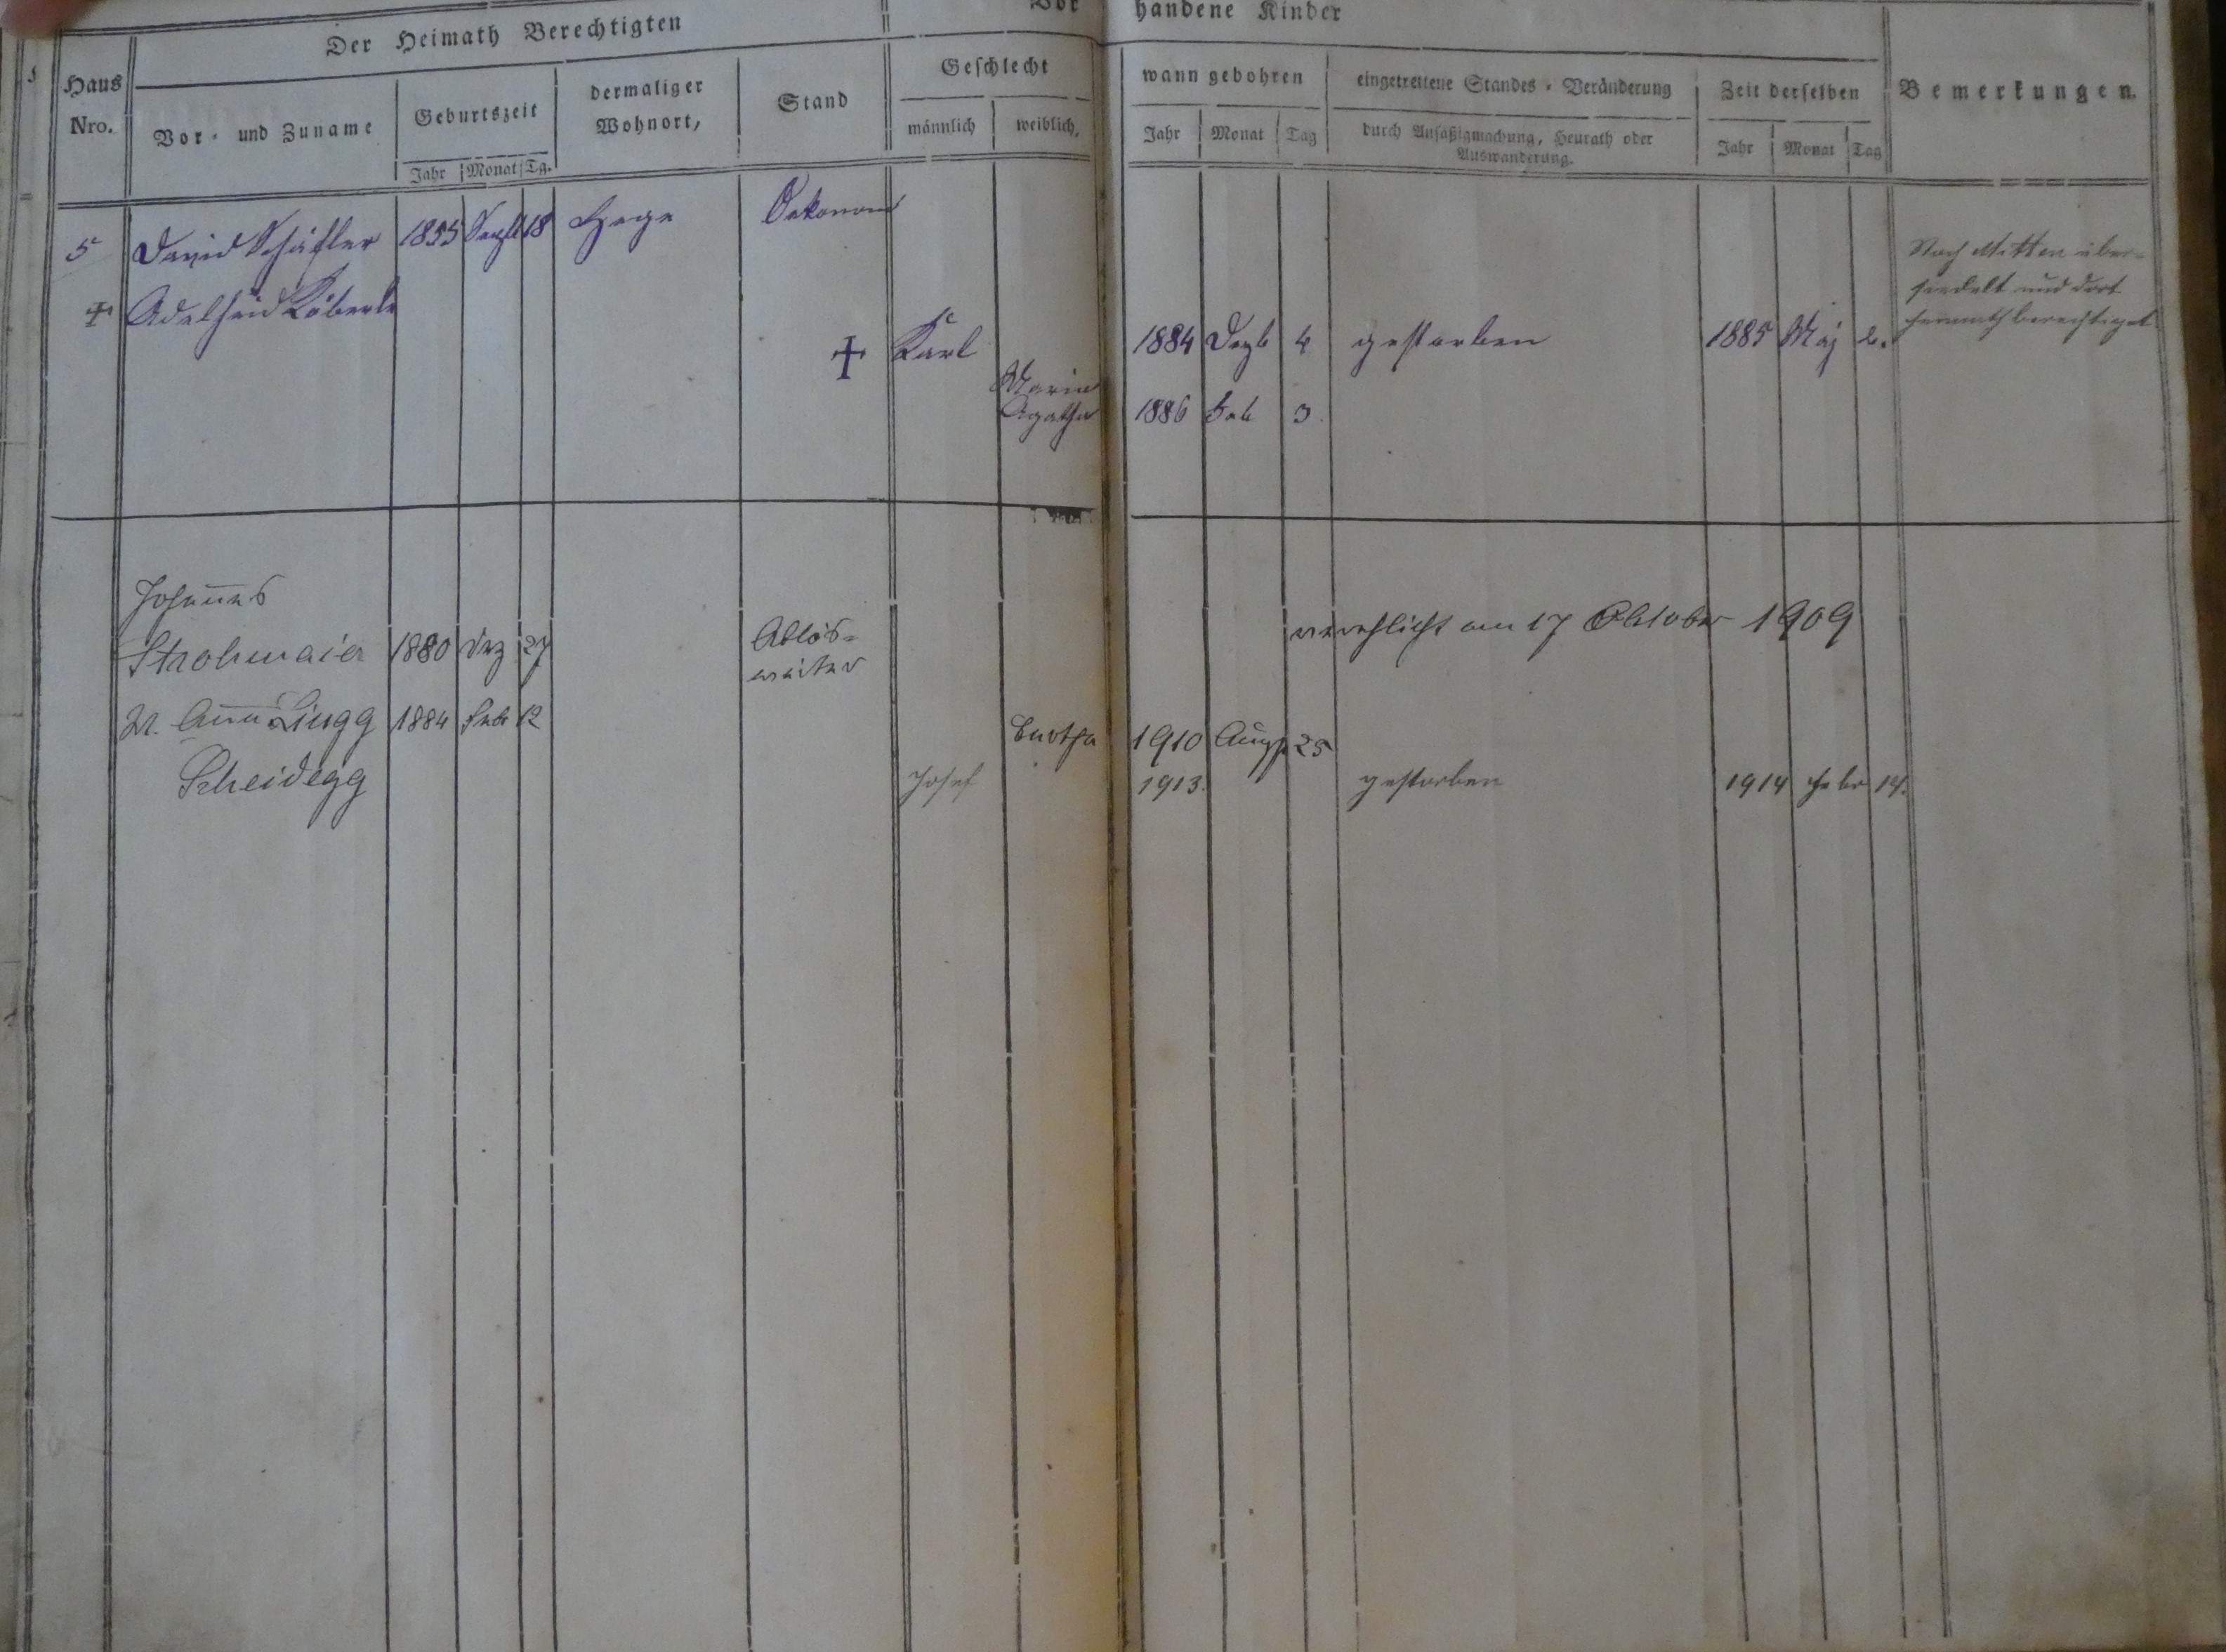 Der Heimath Berechtigten
Vorhandene Kinder
Haus
Nro.
Vor- und Zuname
Geburtszeit
Jahr Monat Tg.
dermaliger
Wohnort,
Stand
Geschlecht
männlich weiblich,
wann gebohren
Jahr Monat Tag
eingetrettene Standes-Veränderung
durch Ansäßigmachung, Heurath oder
Auswanderung.
Zeit derselben
Jahr Monat Tag
Bemerkungen.
5 David Schäfler 1855 Sept 18 Hege Oekonom
Nach Mitten über-
siedelt und dort
heimathberechtiget
+ Adelheid Köberle
+ Karl 1884 Dezb 4 gestorben 1885 Maj
Maria
Agatha 1886 Feb 3.
Johannes
Strohmaier 1880 Dez 27
verehlicht am 17 Oktober 1909
M. Anna Lingg 1884 Feb 12 Bertha 1910 Aug. 25
Scheidegg Josef 1913. gestorben 1914 Febr 14.